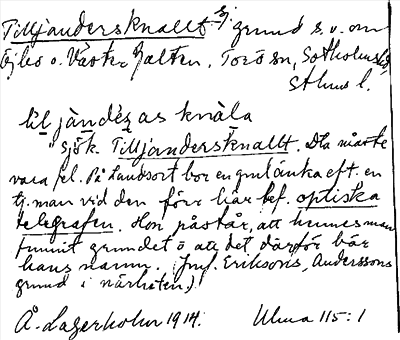 Tilljandersknallt sj. grund s.v. om
Öjbo o. Väster Balten, Torö sn, Sotholms hd,
Sthms l.
lìl jànděz as knàla
Sjök. Tilljandersknallt. Dta måste
vara fel. På Landsort bor en gul änka eft. en
tj. man vid den förr här bef. optiska
telegrafen. Hon påstår, att hennes man
funnit grundet o att det därför bär
hans namn. (Jmf. Eriksons, Anderssons
grund i närheten.)
Å. Lagerholm 1914. Ulma 115:1